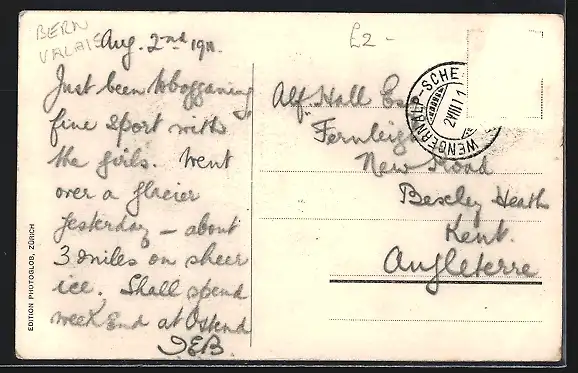 BERN
VALAIS
£2 -
Aug. 2nd 1911.
Just been tobogganing
fine sport with
the girls. Went
over a glacier
yesterday – about
3 miles on sheer
ice. Shall spend
week end at Ostend
Alf. Hall Es
"Fernleigh
New Road
Bexley Heath
Kent.
Angleterre
WENGERNALP-SCHE
2 VIII 11
EDITION PHOTOGLOB, ZÜRICH